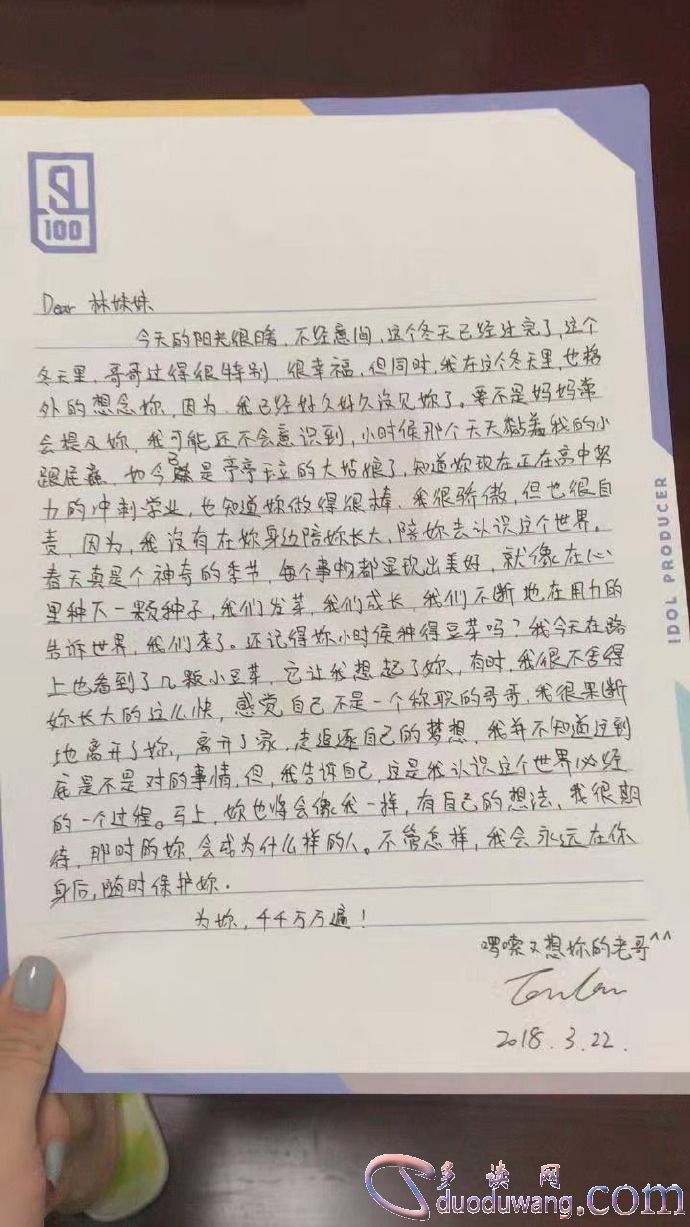 100
Dear 林妹妹
今天的阳光很暖，不经意间，这个冬天已经过完了，这个
冬天里，哥哥过得很特别，很幸福，但同时，我在这个冬天里，也格
外的想念妳，因为，我已经好久好久没见妳了。要不是妈妈常
会提及妳，我可能还不会意识到，小时候那个天天黏着我的小
跟屁蟲，如今已是亭亭玉立的大姑娘了，知道妳现在正在高中努
力的冲刺学业，也知道妳做得很棒，我很骄傲，但也很自
责，因为，我没有在妳身边陪妳长大，陪妳去认识这个世界。
春天真是个神奇的季节，每个事物都显现出美好，就像在心
里种下一颗种子，我们发芽，我们成长，我们不断地在用力的
告诉世界，我们来了。还记得妳小时候种得豆芽吗？我今天在路
上也看到了几颗小豆芽，它让我想起了妳，有时，我很不舍得
妳长大的这么快，感觉自己不是一个称职的哥哥，我很果断
地离开了妳，离开了家，去追逐自己的梦想，我并不知道这到
底是不是对的事情，但，我告诉自己，这是我认识这个世界必经
的一个过程。马上，妳也将会像我一样，有自己的想法，我很期
待，那时的妳，会成为什么样的人。不管怎样，我会永远在你
身后，随时保护妳。
为妳，千千万万遍！
啰嗦又想妳的老哥^^
2018.3.22.
IDOL PRODUCER
多读网
duoduwang.com